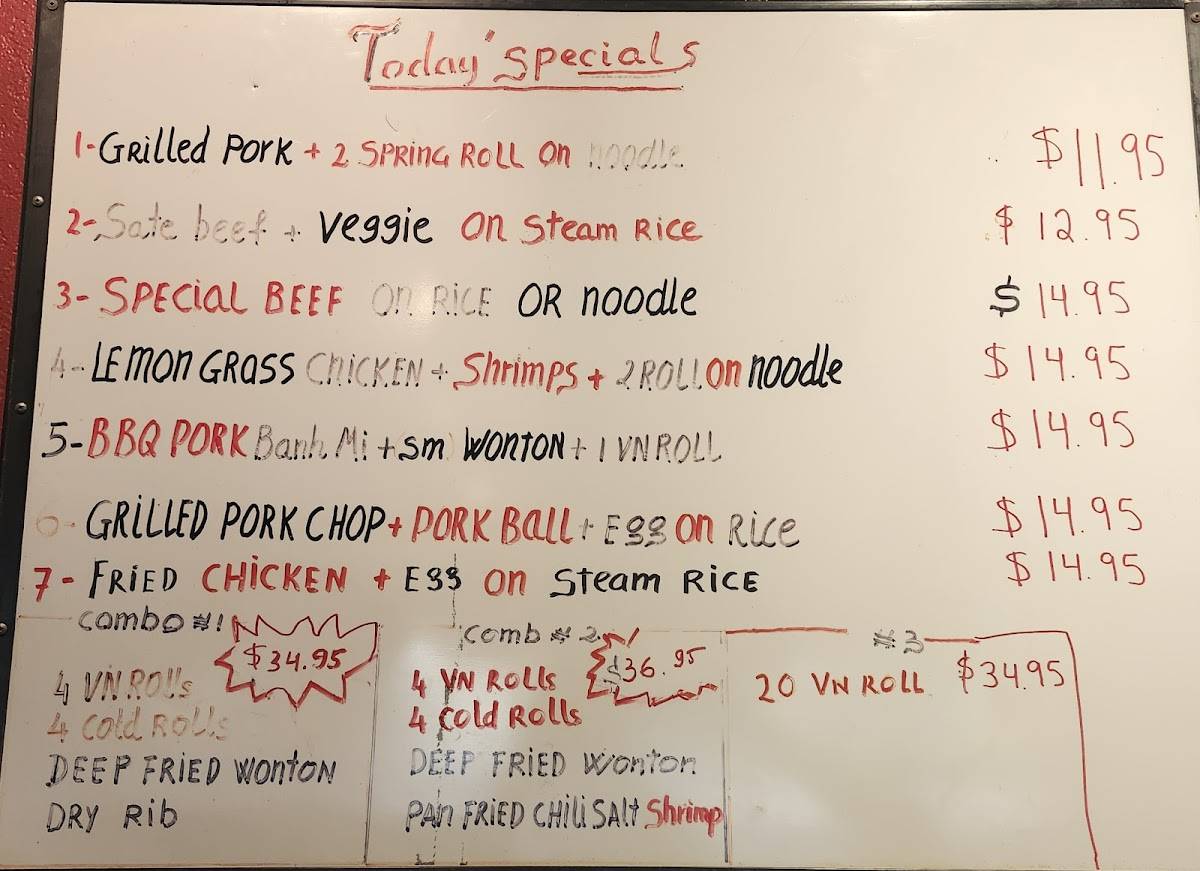 Today's specials
1-Grilled Pork + 2 SPRING ROLL on noodle $11.95
2-Sate beef + Veggie on Steam RICE $12.95
3- SPECIAL BEEF on RICE OR noodle $14.95
4-LEMON GRASS CHICKEN + Shrimps + 2 ROLL on noodle $14.95
5-BBQ PORK Banh Mi + sm WONTON + 1 VN ROLL $14.95
6-GRILLED PORK CHOP + PORK BALL + Egg on Rice $14.95
7- FRIED CHICKEN + Egg on Steam RICE $14.95
Combo #1 $34.95
4 VN ROlls
4 Cold Rolls
DEEP FRIED Wonton
DRY Rib
Comb # 2 $36.95
4 VN Rolls
4 Cold Rolls
DEEP FRIED Wonton
PAN FRIED CHILI SALT Shrimp
#3
20 VN ROLL $34.95